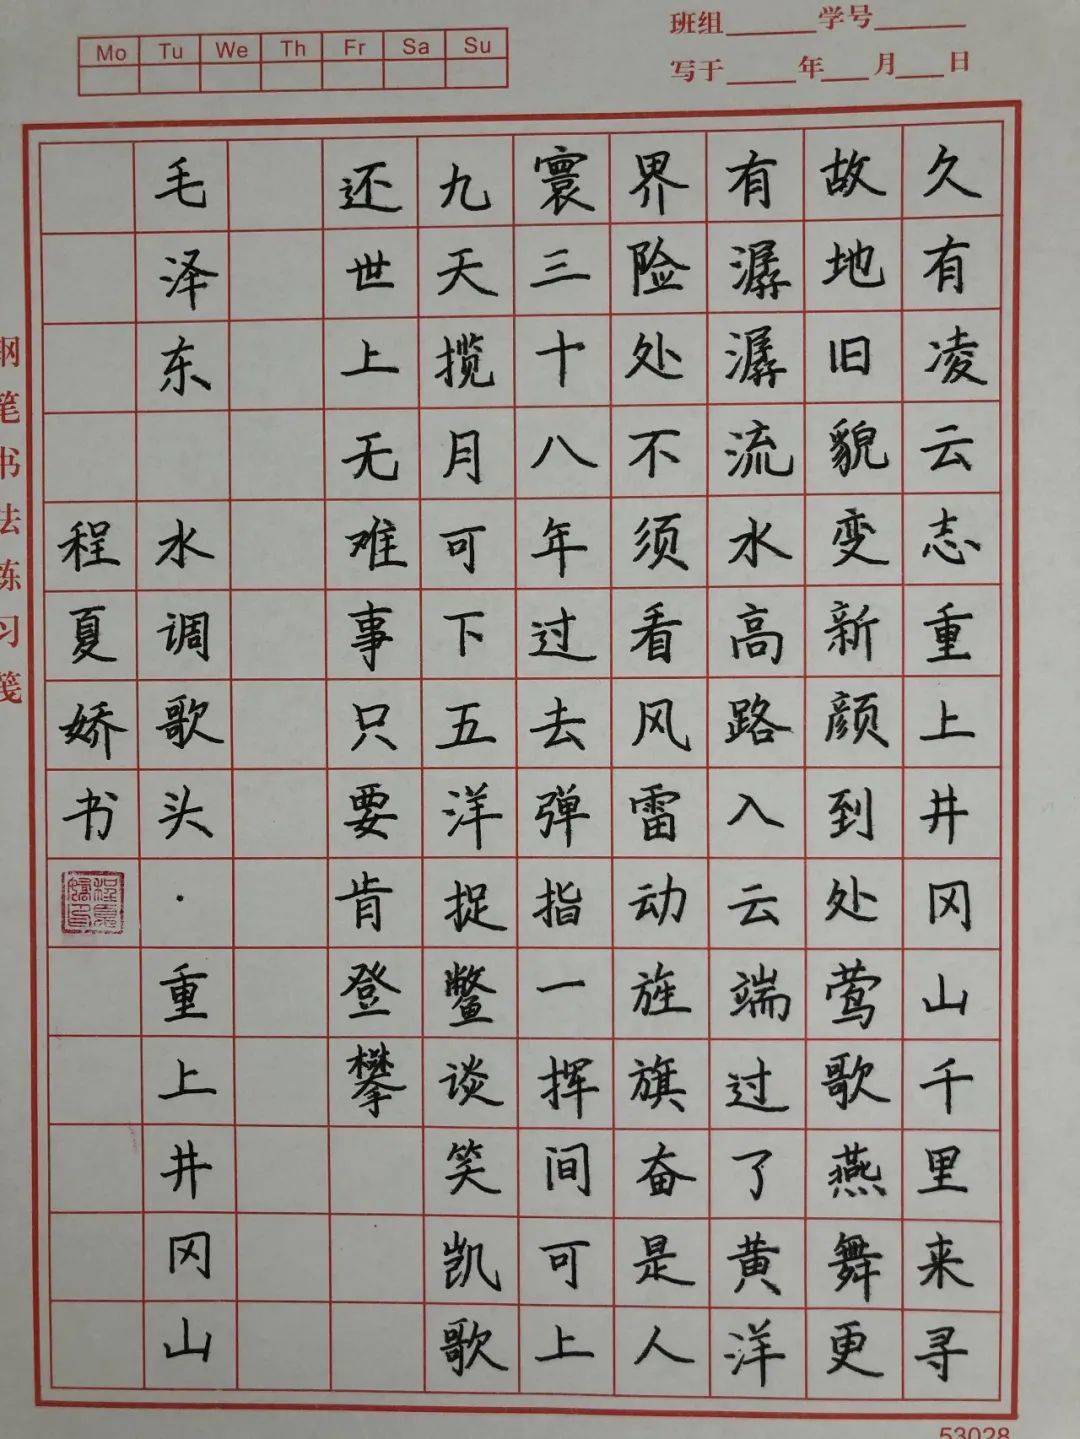 Mo Tu We Th Fr Sa Su
班组 学号
写于 年 月 日
久有凌云志重上井冈山千里来寻
故地旧貌变新颜到处莺歌燕舞更
有潺潺流水高路入云端过了黄洋
界险处不须看风雷动旌旗奋是人
寰三十八年过去弹指一挥间可上
九天揽月可下五洋捉鳖谈笑凯歌
还世上无难事只要肯登攀
毛泽东 水调歌头·重上井冈山
程夏娇书
程夏娇印
钢笔书法练习笺
53028